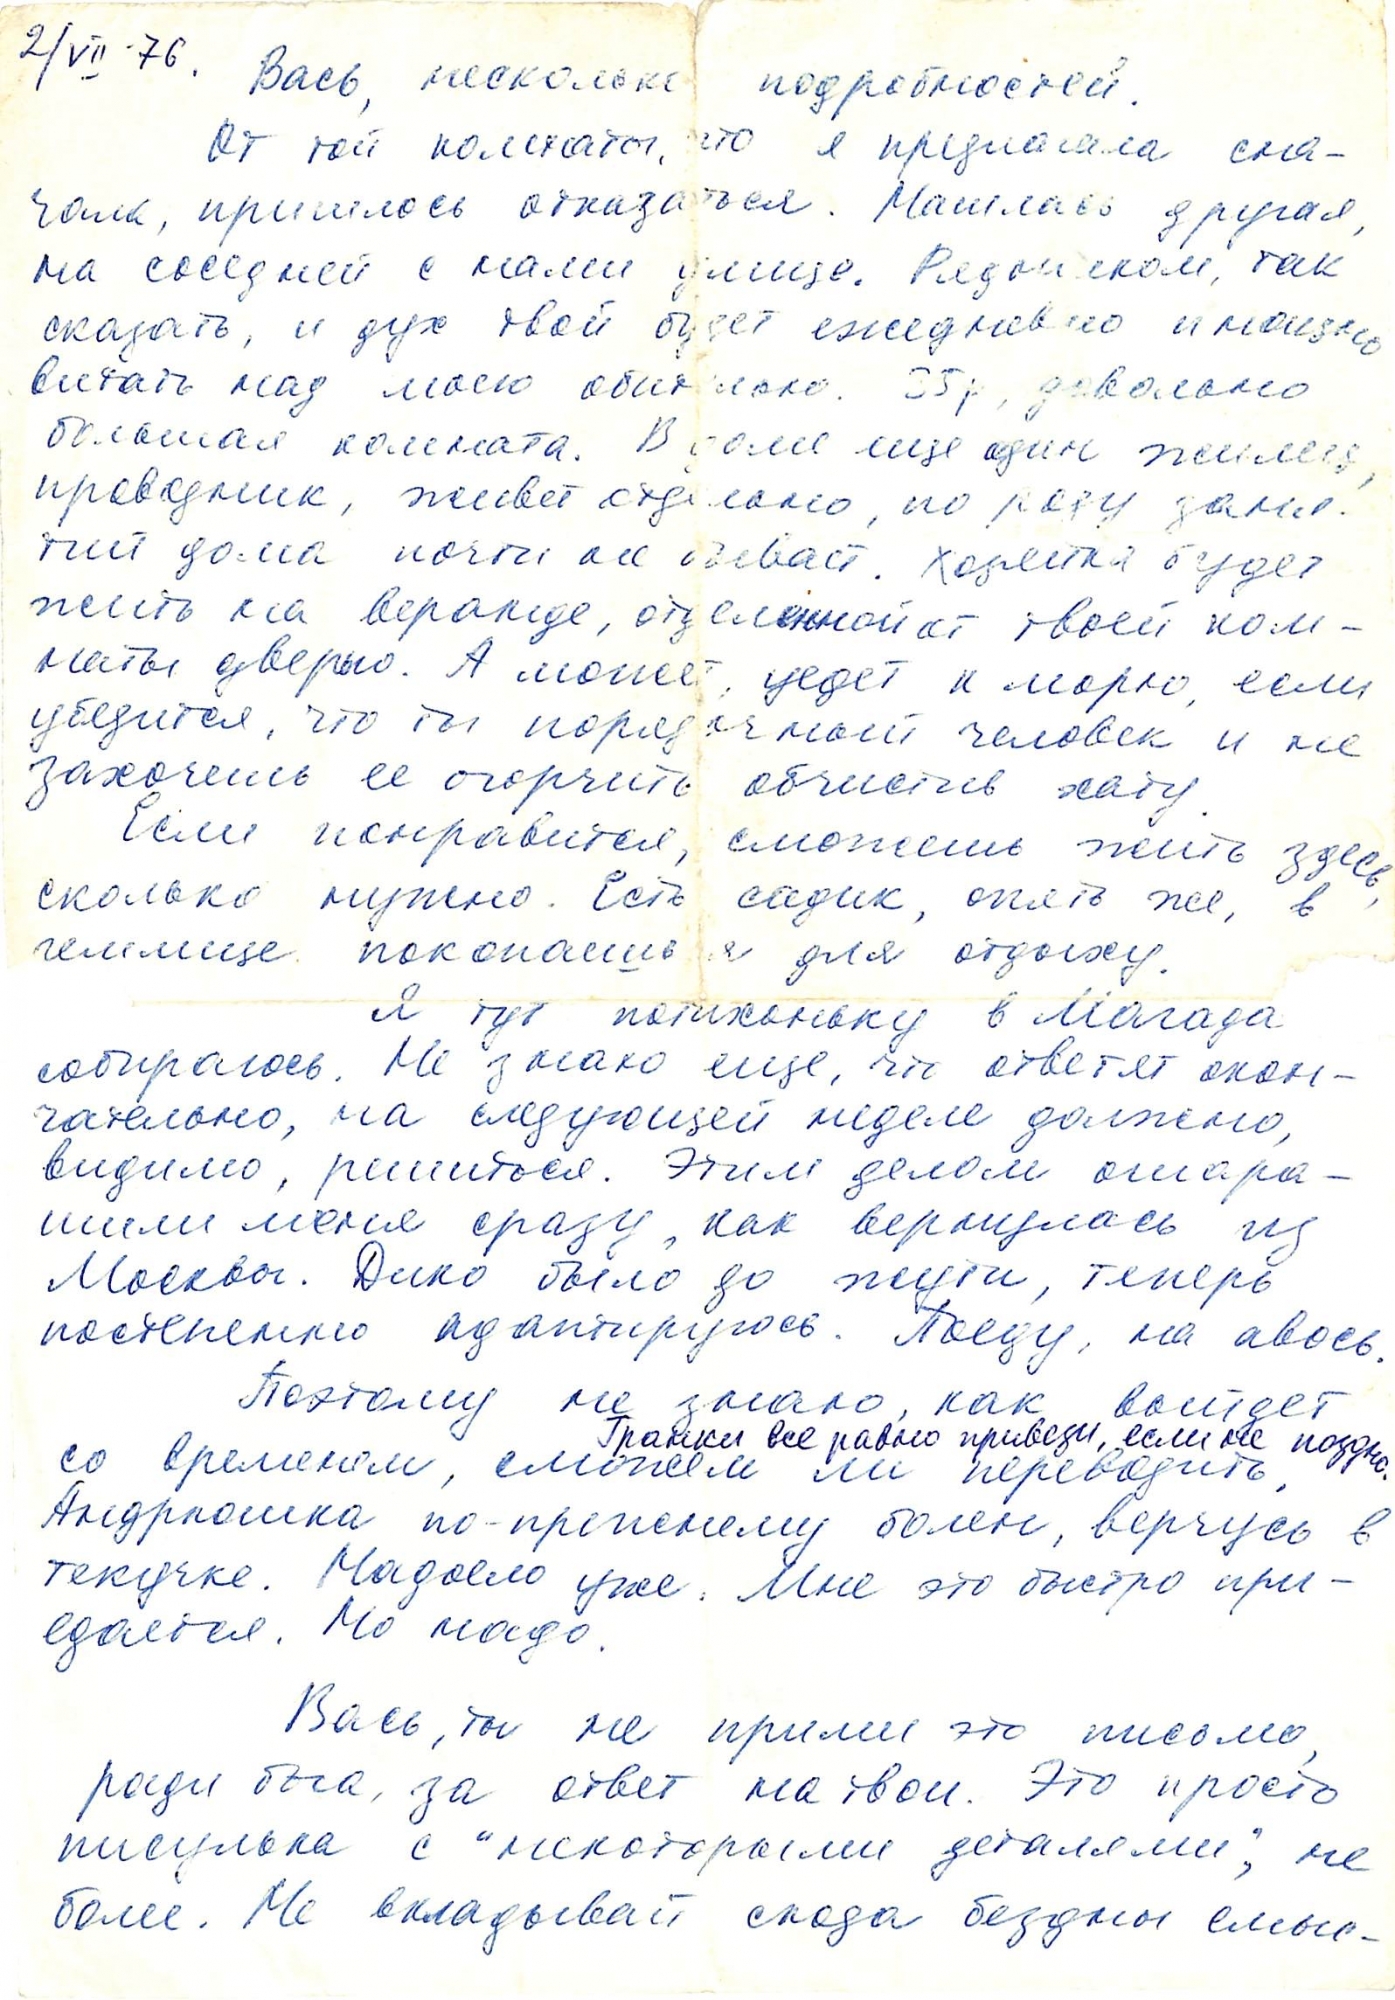 2/VII-76.
Вась, несколько подробностей.
От той комнаты, что я предлагала сна-
чала, пришлось отказаться. Нашлась другая,
на соседней с нами улице. Рядышком, так
сказать, и дух твой будет ежедневно и мощно
витать над моею обителью. 35р, довольно
большая комната. В доме еще один жилец,
проводник, живет отдельно, по роду заня-
тий дома почти не бывает. Хозяйка будет
жить на веранде, отделенной от твоей ком-
наты дверью. А может, уедет к морю, если
убедится, что ты порядочный человек и не
захочешь ее огорчить обчистив хату.
Если понравится, сможешь жить здесь,
сколько нужно. Есть садик, опять же, в
землице покопаешься для отдыху.
Я тут потихоньку в Магадан
собираюсь. Не знаю еще, что ответят окон-
чательно, на следующей неделе должно,
видимо, решиться. Этим делом ошара-
шили меня сразу, как вернулась из
Москвы. Дико было до жути, теперь
постепенно адаптируюсь. Поеду, на авось.
Поэтому не знаю, как выйдет
Гранки все равно привези, если не поздно.
со временем, сможем ли переводить,
Андрюшка по-прежнему болен, верчусь в
текучке. Надоело уже. Мне это быстро при-
едается. Но надо.
Вась, ты не прими это письмо,
ради бога, за ответ на твои. Это просто
писулька с "некоторыми деталями", не
более. Не вкладывай сюда бездны смыс-